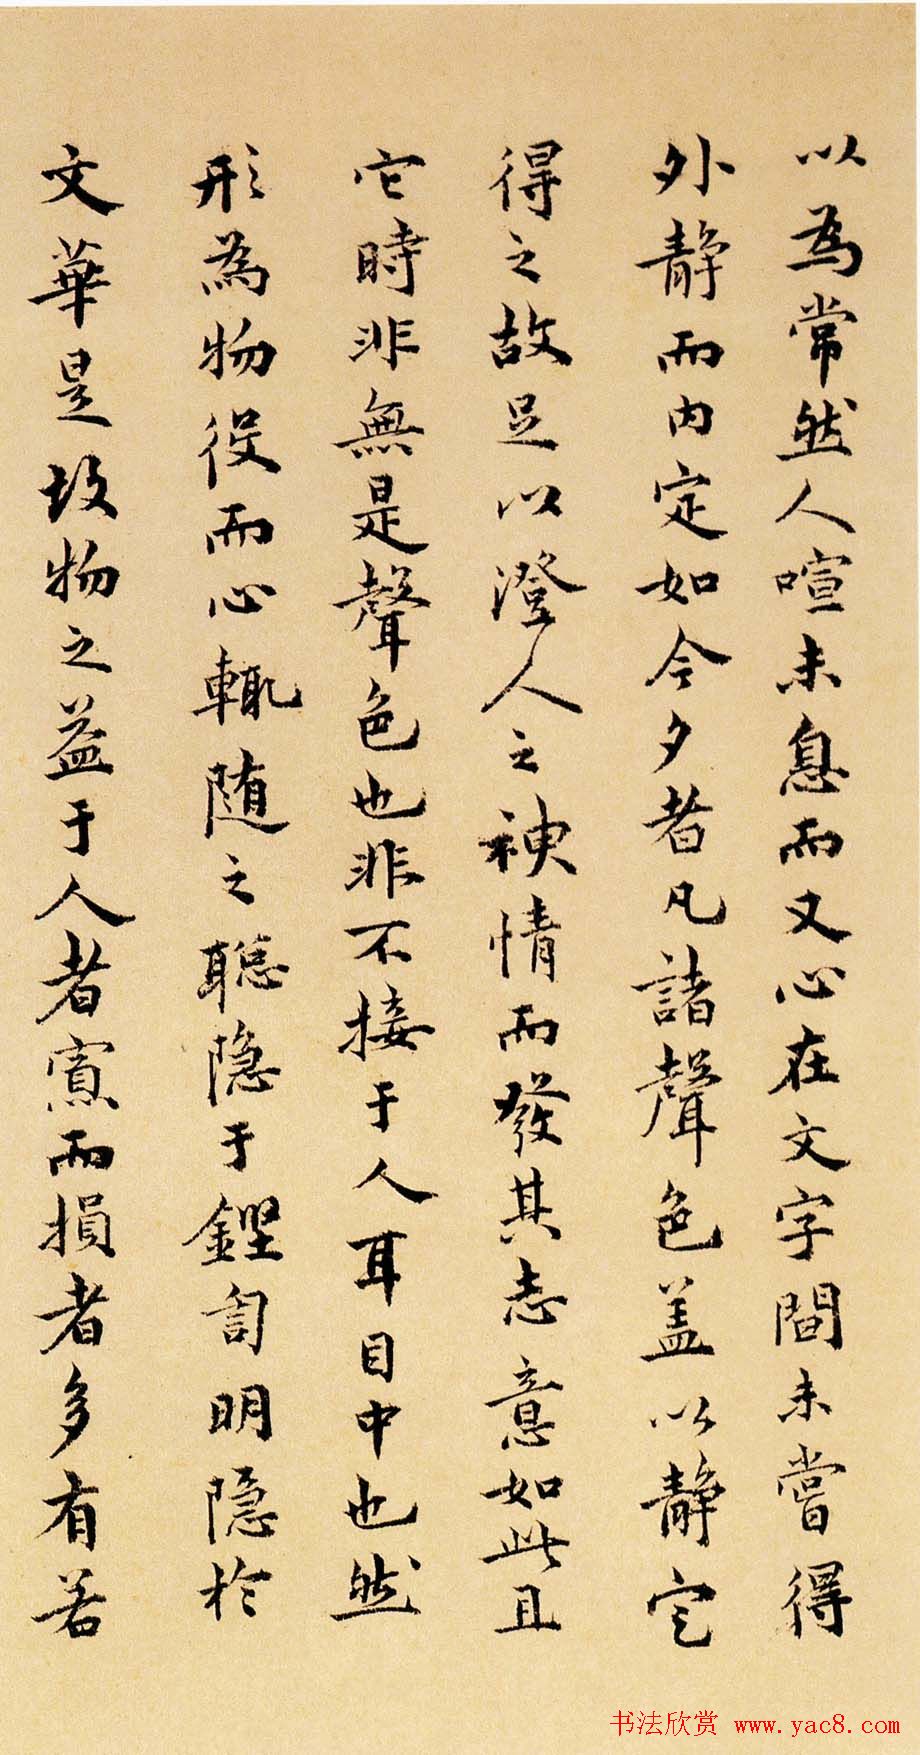 以為常然人喧未息而又心在文字間未嘗得
外静而内定如今夕者凡諸聲色盖以静定
得之故足以澄人之神情而發其志意如此且
它時非無是聲色也非不接于人耳目中也然
形為物役而心輒随之聪隐于鏗訇明隐於
文華是故物之益于人者寡而損者多有若
书法欣赏 www.yac8.com